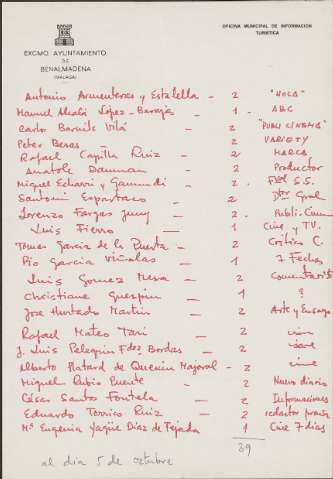 OFICINA MUNICIPAL DE INFORMACION
TURISTICA
EXCMO. AYUNTAMIENTO
DE
BENALMADENA
(MALAGA)
Antonio Armenteras y Estalella - 2 "HOLA"
Manuel Alcalá López-Barajas - 1 - ABC
Carlo Barnils Vilá - 2 "PUBLICINEMA"
Peter Besas - 2 VARIETY
Rafael Capilla Ruiz - 2 MARCA
Anatole Dauman - 2 Productor
Miguel Echarri y Gamundi - 2 S.S.
Santoni Espartaco - 2 Gral
Lorenzo Fargas Juny - 2 - Publi-Cinema
Luis Fierro - 1 Cine y TV.
Tomas Garcia de la Puerta - 2 Critico C.
Pio Garcia Viñolas - 1 7 Fechas
Luis Gomez Mesa - 2 Comentarista
Christiane - 1 ?
Jose Hurtado Martin - 2 Arte y Ensayo
Rafael Mateo Tari - 2
J. Luis Pelegrin Fdez Bordas - 2
Alberto Platard de Quenin Mayoral - 2 cine
Miguel Rubio Puente - 2 Nuevo diario
César Santos Fontela - 2 Informaciones
Eduardo Torrico Ruiz - 2 redactor prensa
Mª Eugenia Yagüe Diaz de Tejada - 1 Cine 7 dias
39
al dia 5 de octubre